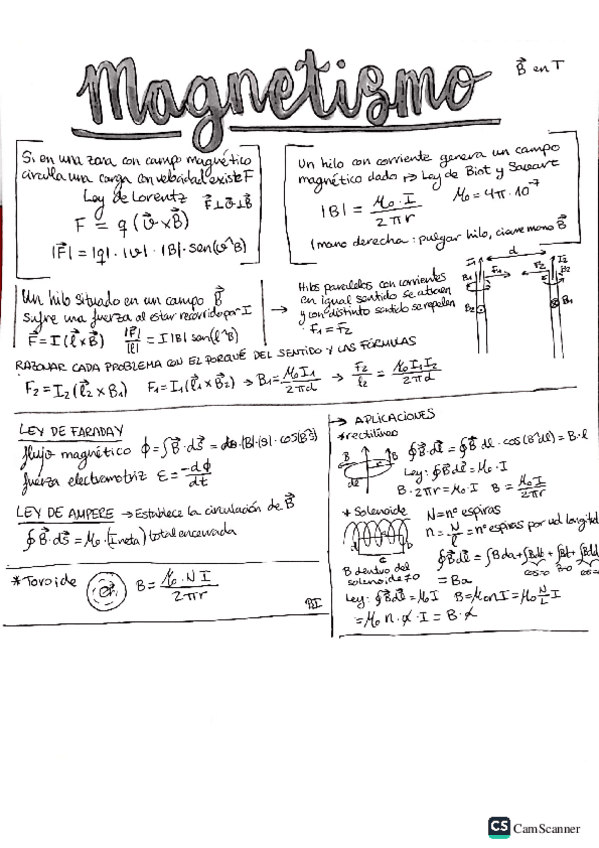 Magnetismo
B⃗ en T
Si en una zona con campo magnético
circula una carga con velocidad existe F
Ley de Lorentz F⊥v⃗⊥B⃗
F = q (v⃗×B⃗)
|F⃗| = |q| · |v| · |B| · sen(v^B)
Un hilo con corriente genera un campo
magnético dado → Ley de Biot y Savart
|B| = μ₀ · I / 2πr μ₀ = 4π · 10⁻⁷
1 mano derecha : pulgar hilo, cierre mano B⃗
Un hilo situado en un campo B⃗
sufre una fuerza al estar recorrido por I
F⃗ = I (l⃗×B⃗) |F⃗|/|l⃗| = I |B| sen(l^B)
→ Hilos paralelos con corrientes
en igual sentido se atraen
y con distinto sentido se repelen
· F₁ = F₂
d
I₁ I₂
B₁ F₁ F₂ B₂
B₂ B₁
RAZONAR CADA PROBLEMA CON EL PORQUÉ DEL SENTIDO Y LAS FÓRMULAS
F₂ = I₂ (l⃗₂ × B₁) F₁ = I₁ (l⃗₁ × B₂) → B₁ = μ₀ I₁ / 2πd → F₂/l₂ = μ₀ I₁ I₂ / 2πd
LEY DE FARADAY
flujo magnético ϕ = ∫ B⃗ · dS⃗ = |B| · |S| · cos(B^S)
fuerza electromotriz ε = -dϕ/dt
LEY DE AMPERE → Establece la circulación de B⃗
∮ B⃗ · dS⃗ = μ₀ · (I neta) total encerrada
* Toroide B = μ₀ · N I / 2πr
→ APLICACIONES
* rectilíneo
B B
dl
∮ B⃗ · dl⃗ = ∮ B⃗ dl · cos(B^dl) = B · l
Ley: ∮ B⃗ dl⃗ = μ₀ · I
B · 2πr = μ₀ · I B = μ₀ · I / 2πr
* Solenoide N = nº espiras
n = N/l = nº espiras por ud longitud
B dentro del
solenoide ≠ 0
cos=0 B=0 cos=0
= Ba
Ley: ∮ B⃗ dl⃗ = μ₀ I B = μ₀ n I = μ₀ N/L I
CS CamScanner